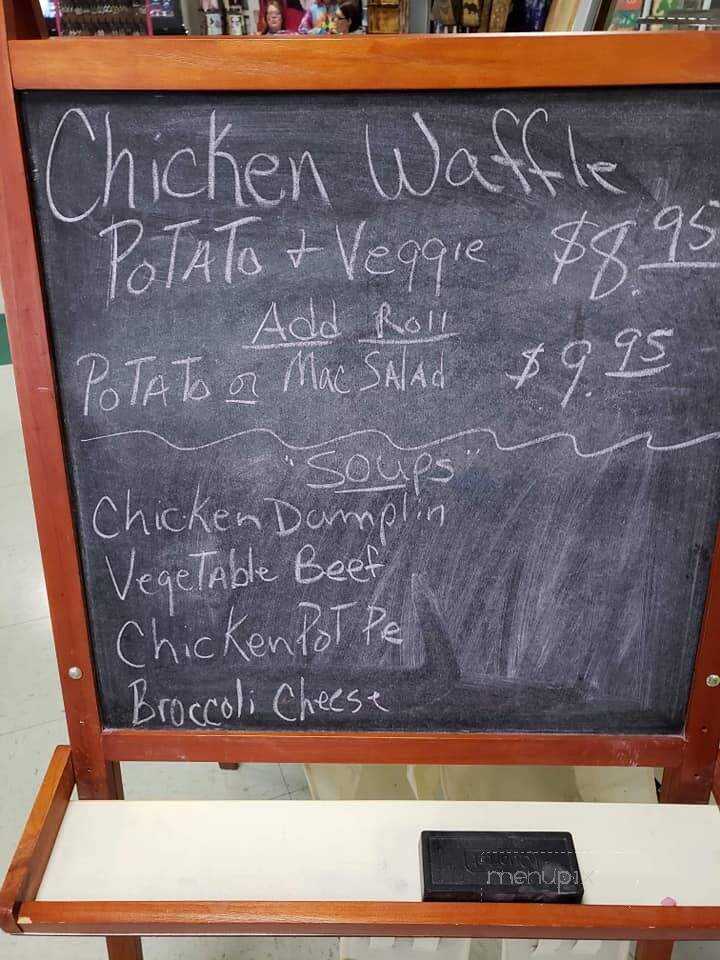 Chicken Waffle
Potato + Veggie $8.95
Add Roll
Potato or Mac Salad $9.95
"Soups"
Chicken Dumplin
Vegetable Beef
Chicken Pot Pe
Broccoli Cheese
menupix